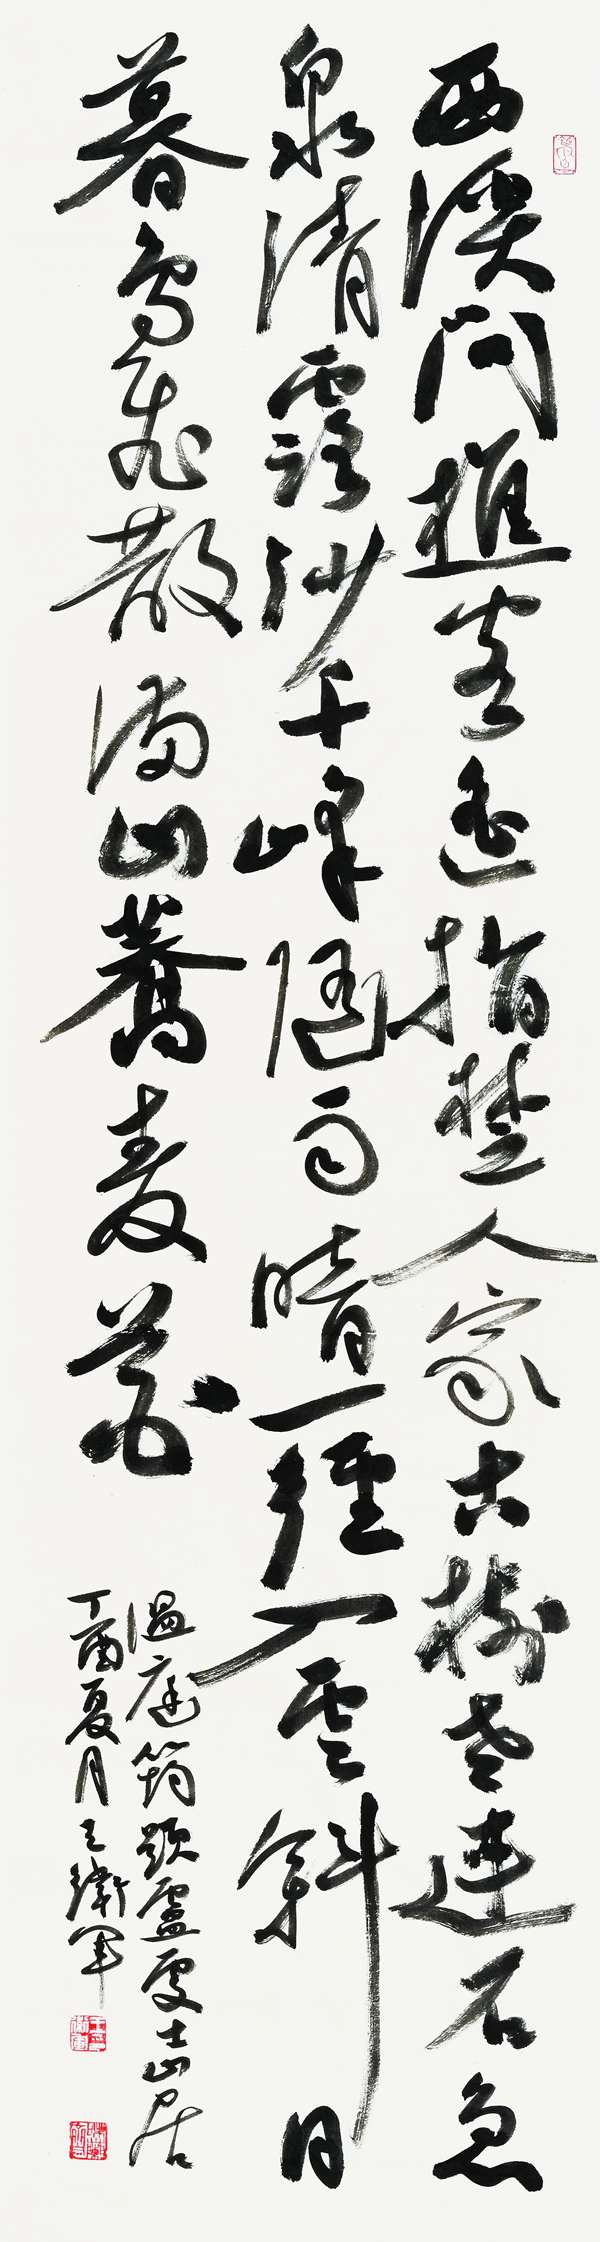 西溪問樵客遥指楚人家古樹老連石急
泉清露沙千峰随雨暗一徑入雲斜日
暮鳥飛散滿山蕎麦花
温庭筠題盧處士山居
丁酉夏月王衛軍